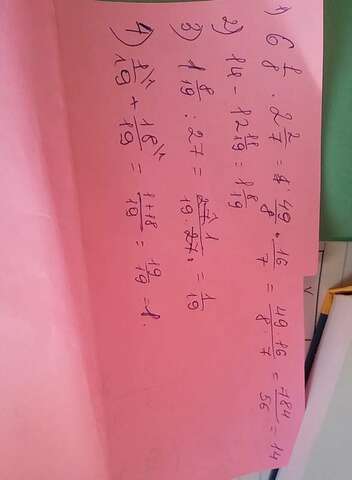 1) 6 1/8 · 2 2/7 = 49/8 · 16/7 = 49·16/8 7 = 784/56 = 14
2) 14 - 12 11/19 = 1 8/19
3) 1 8/19 : 27 = 27 1/19·27 = 1/19
4) 1/19 + 18/19 = 1+18/19 = 19/19 = 1.